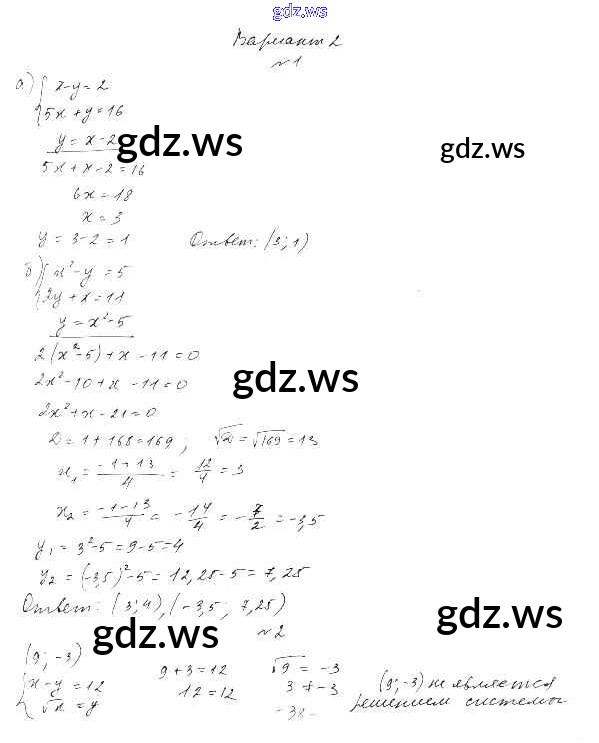 gdz.ws
Вариант 2
№1
а) { x-y=2
5x+y=16
y=x-2
gdz.ws
gdz.ws
5x+x-2=16
6x=18
x=3
y=3-2=1 Ответ: (3;1)
б) { x²-y=5
2y+x=11
y=x²-5
2(x²-5)+x-11=0
gdz.ws
2x²-10+x-11=0
2x²+x-21=0
D=1+168=169; √D=√169=13
x₁=(-1+13)/4=12/4=3
x₂=(-1-13)/4=-14/4=-7/2=-3,5
y₁=3²-5=9-5=4
y₂=(-3,5)²-5=12,25-5=7,25
Ответ: (3;4),(-3,5; 7,25)
gdz.ws
gdz.ws
№2
(9;-3) 9+3=12 √9=-3
{ x-y=12 12=12 3≠-3 (9;-3) не является
√x=y решением системы